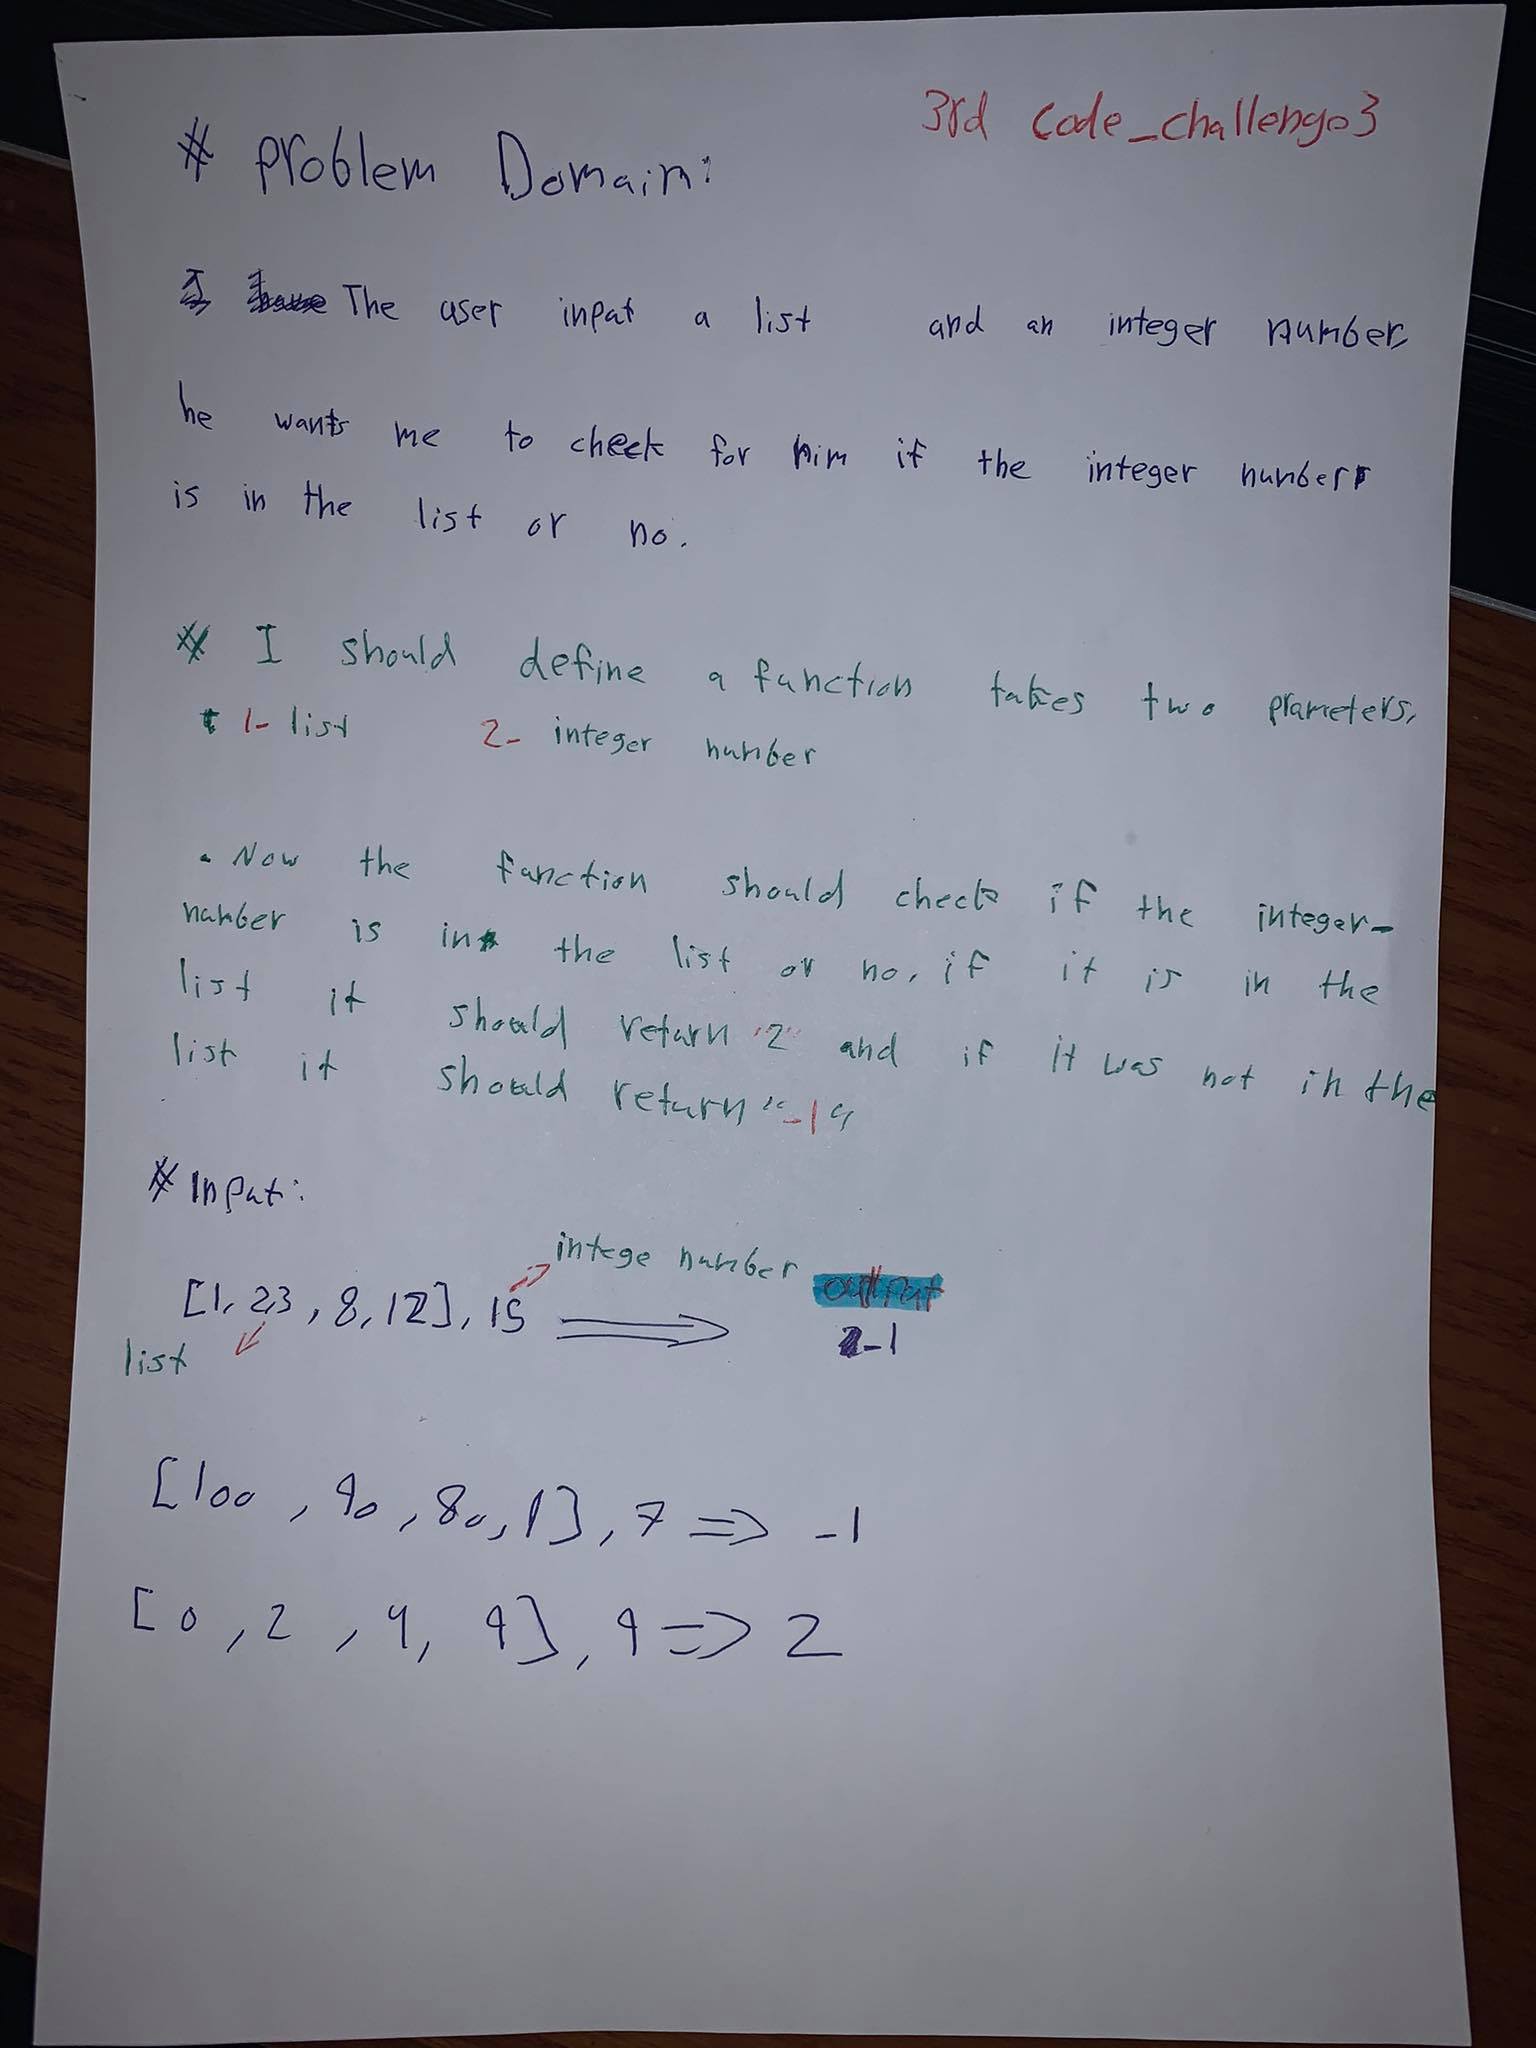 3rd code_challenge3
# Problem Domain:
The user inpat a list and an integer number,
he wants me to check for him if the integer number
is in the list or no.
# I should define a function takes two prameters,
1- list 2- integer number
. Now the function should check if the integer-
number is in the list or no, if it is in the
list it should return "2" and if it was not in the
list it should return "-1"
# Inpat:
intege number
output
[1, 23, 8, 12], 15 ⟹ -1
list
[100, 90, 80, 1], 7 => -1
[0, 2, 9, 9], 9 => 2